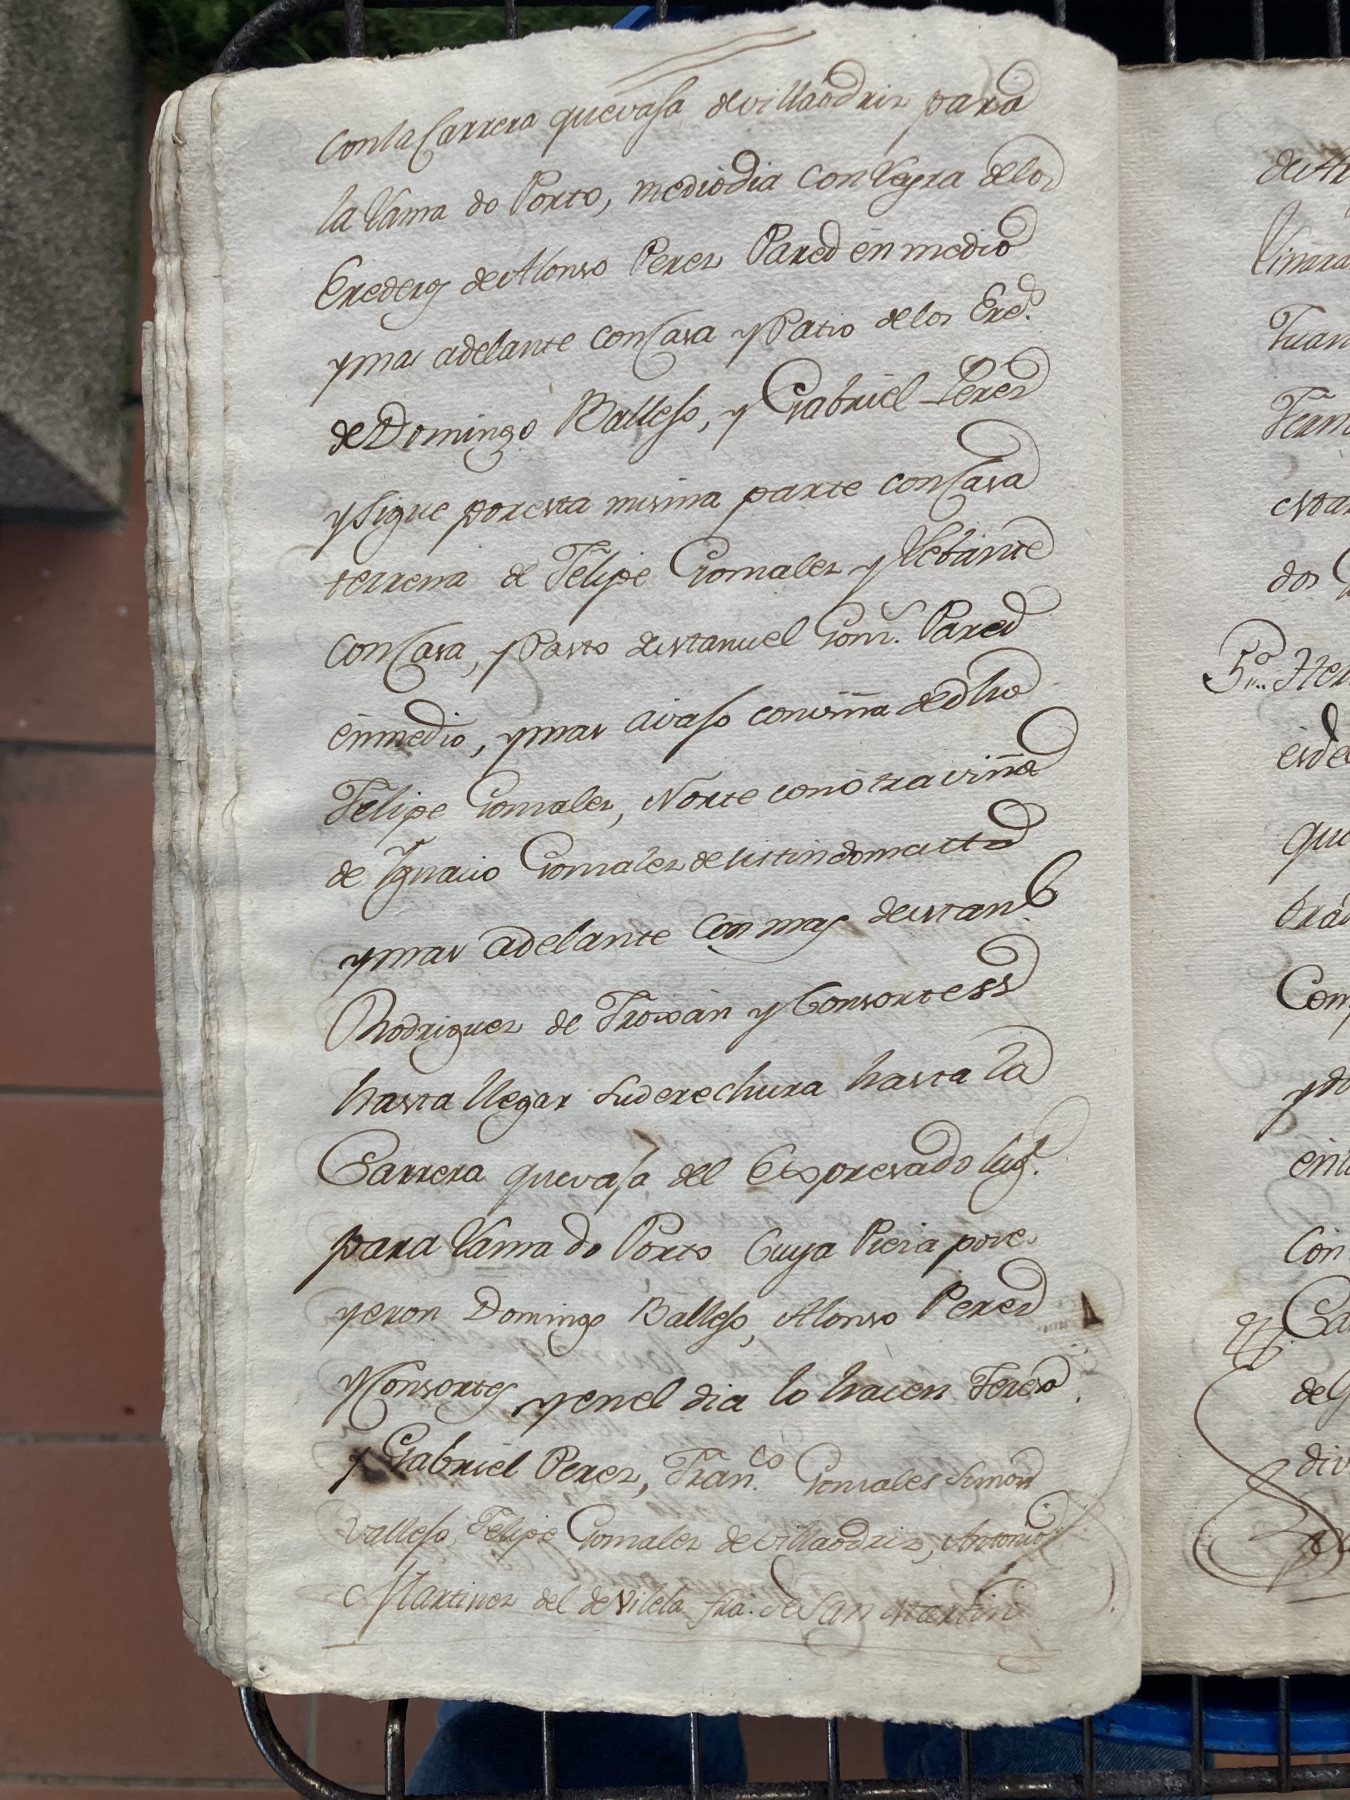 con la Carrera que vasa de villaodriz para
la Vama do Porto, mediodia con Veyra delos
Erederos de Alonso Perez Pared en medio
y mas adelante con Casa y Patio delos Ered.s
de Domingo Balleso, y Gabriel Perez
y sigue por esta misma parte con Casa
terrena de Felipe Gomalez y Lebante
con Casa, y Pasto de Manuel Gonz. Pared
en medio, y mas avaso con viña de dho
Felipe Gomalez, Norte con otra viña
de Ignacio Gomalez de Vistin do
y mas adelante con mas de Man.l
Rodriguez de Troxan y Consortes
hasta llegar su derechura hasta la
Carrera que vasa del Expresado lug.r
para Vama do Porto Cuya Pieza pose
yeron Domingo Balleso, Alonso Perez
y Consortes y en el dia lo hacen Teresa
y Gabriel Perez, Fran.co Gonzales Simon
Valleso, Felipe Gomalez de villaodriz, Antonio
Martinez del de Vilela fra. de San Martin
de
5.º Iten
que
Com
en
Con
de